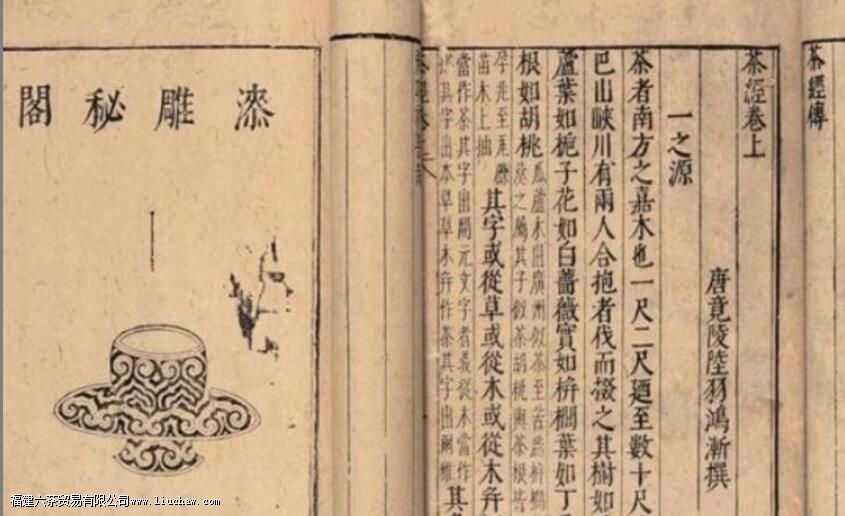 茶經傳
茶經卷上
唐竟陵陸羽鴻漸撰
一之源
茶者南方之嘉木也一尺二尺廼至數十尺
巴山峽川有兩人合抱者伐而掇之其樹如
蘆葉如梔子花如白薔薇實如栟櫚葉如丁
根如胡桃
瓜蘆木出廣州似茶至苦澁栟櫚
葵之屬其子似茶胡桃與茶根皆
孕兆至瓦礫
苗木上抽
其字或從草或從木或從木并
當作茶其字出開元文字者義從木當作
其字出本草草木并作茶其字出爾雅
其名
漆雕秘閣
福建六茶贸易有限公司www.liuchaw.com